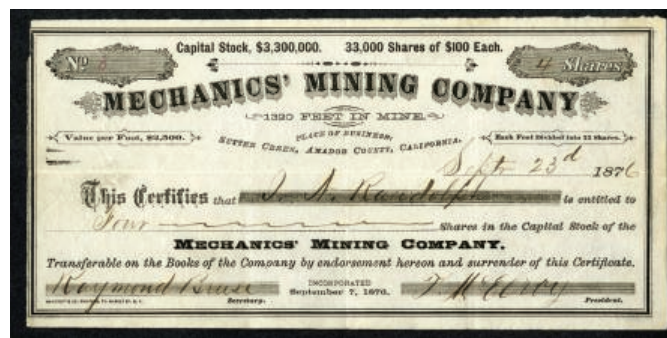 Nº 3
Capital Stock, $3,300,000. 33,000 Shares of $100 Each.
4 Shares
MECHANICS' MINING COMPANY
1320 FEET IN MINE.
Value per Foot, $2,500.
PLACE OF BUSINESS:
Each Foot Divided into 25 Shares.
SUTTER CREEK, AMADOR COUNTY, CALIFORNIA.
Septr 23d 1876
This Certifies that J. A. Randolph is entitled to
Four Shares in the Capital Stock of the
MECHANICS' MINING COMPANY.
Transferable on the Books of the Company by endorsement hereon and surrender of this Certificate.
Raymond Secretary.
INCORPORATED
September 7, 1876.
President.